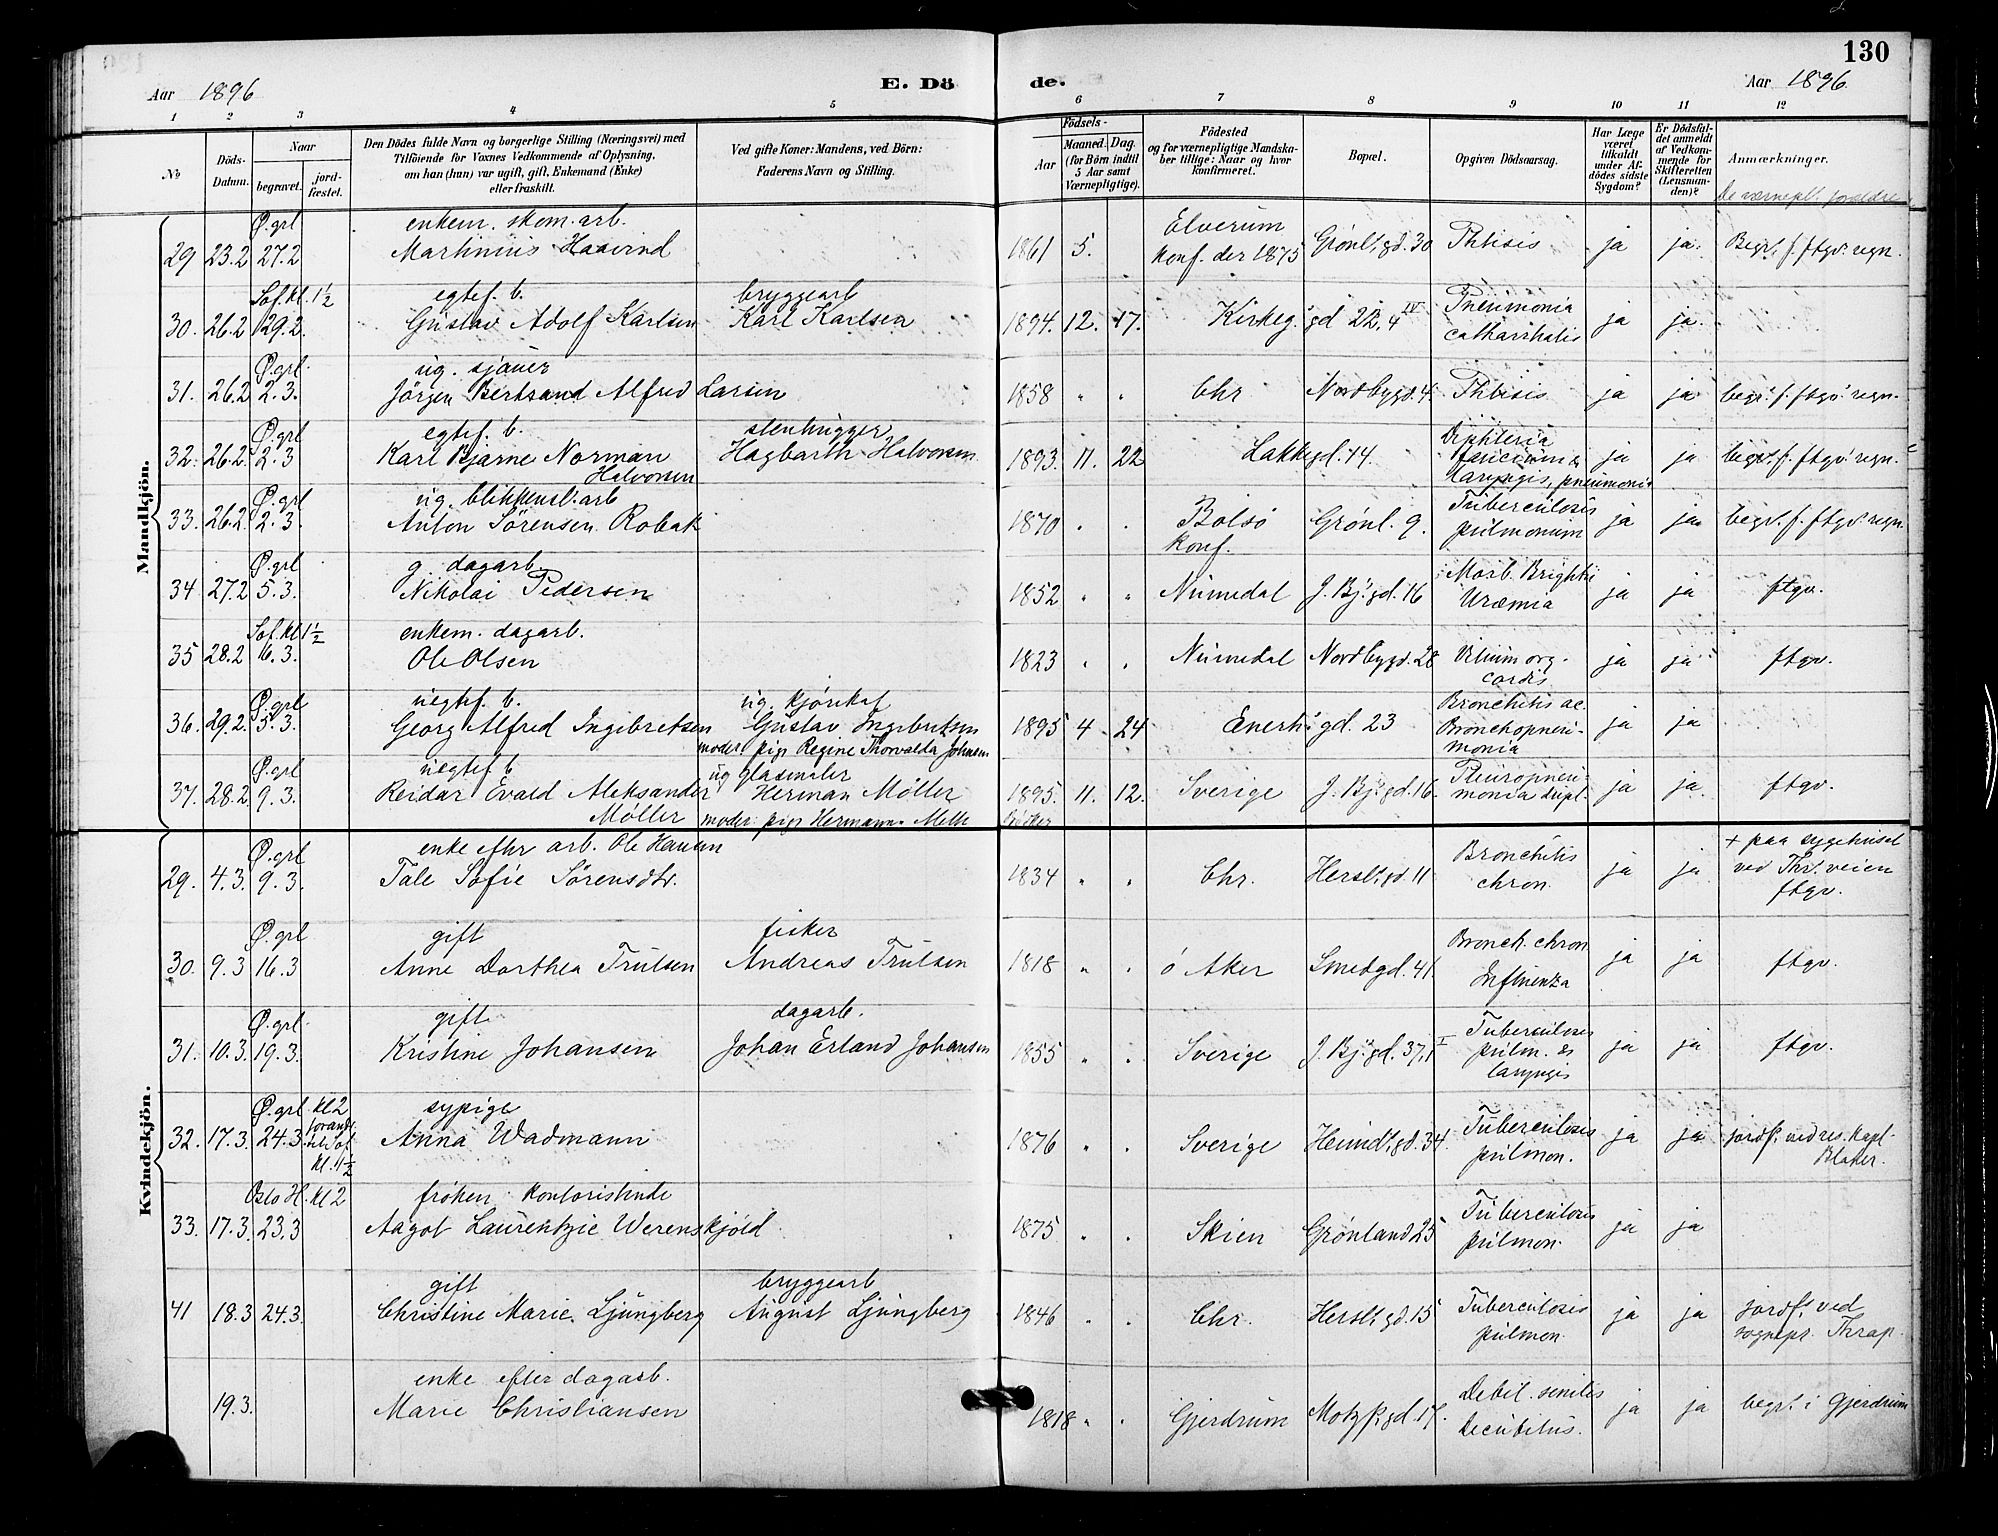 130
Aar 1896 E. Dö de. Aar 1896
1 2 3 4 5 6 7 8 9 10 11 12
No
Döds-Datum.
Naar
begravet.
jord-fæstet.
Den Dödes fulde Navn og borgerlige Stilling (Næringsvei) med
Tilföiende for Voxnes Vedkommende af Oplysning,
om han (hun) var ugift, gift, Enkemand (Enke)
eller fraskilt.
Ved gifte Koner: Mandens, ved Börn:
Faderens Navn og Stilling.
Födsels-
Aar
Maaned. Dag.
(for Börn indtil
5 Aar samt
Værnepligtige).
Födested
og for værnepligtige Mandska-
ber tillige: Naar og hvor
konfirmeret.
Bopæl.
Opgiven Dödsaarsag.
Har Læge
været
tilkaldt
under Af-
dödes sidste
Sygdom?
Er Dödsfal-
det anmeldt
af Vedkom-
mende for
Skifteretten
(Lensman-
den)?
Anmærkninger.
De værnepl. forældre
Mandkjön.
Ø. grl enkem. skom. arb. Elverum
29 23.2 27.2 Martinius Haavind 1861 5. konf. der 1875 Grønl. gd. 30 Phtisis ja ja. Begr. f. ftgv. regn.
Sof. kl. 1½ egtef. b. bryggearb Pneumonia
30. 26.2 29.2. Gustav Adolf Karlsen Karl Karlsen 1894. 12. 17. Kirkeg. gd 22, 4 IV catharrhalis ja ja.
Ø. grl. ug. sjauer
31. 26.2 2.3. Jörgen Bertrand Alfred Larsen 1858 " " Chr Nordbygd. 4 Phtisis ja ja begr. f. ftgv. regn.
Ø. grl egtef. b. stenhugger Diphteria
32. 26.2. 2.3 Karl Bjarne Norman Hagbarth Halvorsen 1893. 11. 22 Lakkegd. 14. faucium & ja ja begr. f. ftgv. regn.
Halvorsen laryngis, pneumonia
Ø. grl ug. blikkensl. arb Tuberculosis
33. 26.2. 2.3. Anton Sörensen Robak 1870 " Bolsö Grønl. 9. pulmonum ja ja. begr. f. ftgv. regn
konf.
Ø. grl g. dagarb. Morb. Brightii
34 27.2 5.3. Nikolai Pedersen 1852 " " Numedal J. Bj. gd. 16 Uræmia ja ja ftgv.
Sof. kl 1½ enkem. dagarb.
35 28.2 6.3. Ole Olsen 1823 " " Numedal Nordbygd. 28 Vitium org. ja ja ftgv.
cordis
Ø. grl uegtef. b. ug. Bronchitis ac.
36. 29.2. 5.3. Georg Alfred Ingebretsen Gustav Ingebretsen 1895 4 24 Enerh. gd. 23 Bronchopneu- ja ja
moder: pige Regine Thorvalda Johnsen monia
Ø. grl uegtef b ug glasmaler Pleuropneu-
37. 28.2. 9.3. Reidar Evald Aleksander Herman Möller 1895. 11. 12. Sverige J. Bj. gd. 16. monia dupl. ja ja ftgv.
Möller moder: pige Hermann. Mette
Kvindekjön.
Ø. grl enke efter arb. Ole Hansen Bronchitis + paa sygehuset
29. 4.3. 9.3. Tale Sofie Sörensdtr. 1834 " " Chr. Herslt. gd. 11 chron. ja ja ved Thr. veien
ftgv.
Ø. grl gift fisker Bronch. chron
30. 9.3 16.3 Anne Dorthea Trulsen Andreas Trulsen 1818 " " ö Aker Smedgd. 41 Influenza ja ja ftgv.
Ø. grl. gift dagarb. Tuberculosis
31. 10.3. 19.3. Kristine Johansen Johan Erland Johansen 1855 " " Sverige J. Bj. gd. 37, 1 I pulm. & ja ja ftgv.
laryngis
Ø. grl. kl 2 sypige Tuberculosis
32. 17.3. 24.3. Anna Wadmann 1876 " " Sverige Heimdl. gd. 34. pulmon. ja ja jordf. ved res. kapl.
kl. 11½ Blaker.
Oslo H. kl 2 fröken kontoristinde Tuberculosis
33. 17.3. 23.3 Aagot Laurentzie Werenskjöld 1875 " " Skien Grönland 25 pulmon. ja ja
gift bryggearb jordf. ved
41 18.3 24.3. Christine Marie Ljungberg August Ljungberg 1846 " " Chr. Herslt. gd. 15 Tuberculosis ja ja
pulmon. sognepr. Thrap.
enke efter dagarb. Debil. senilis
19.3. Marie Christiansen 1818 " " Gjerdrum Motzf. gd. 17. Decubitus. ja ja begr. i Gjerdrum